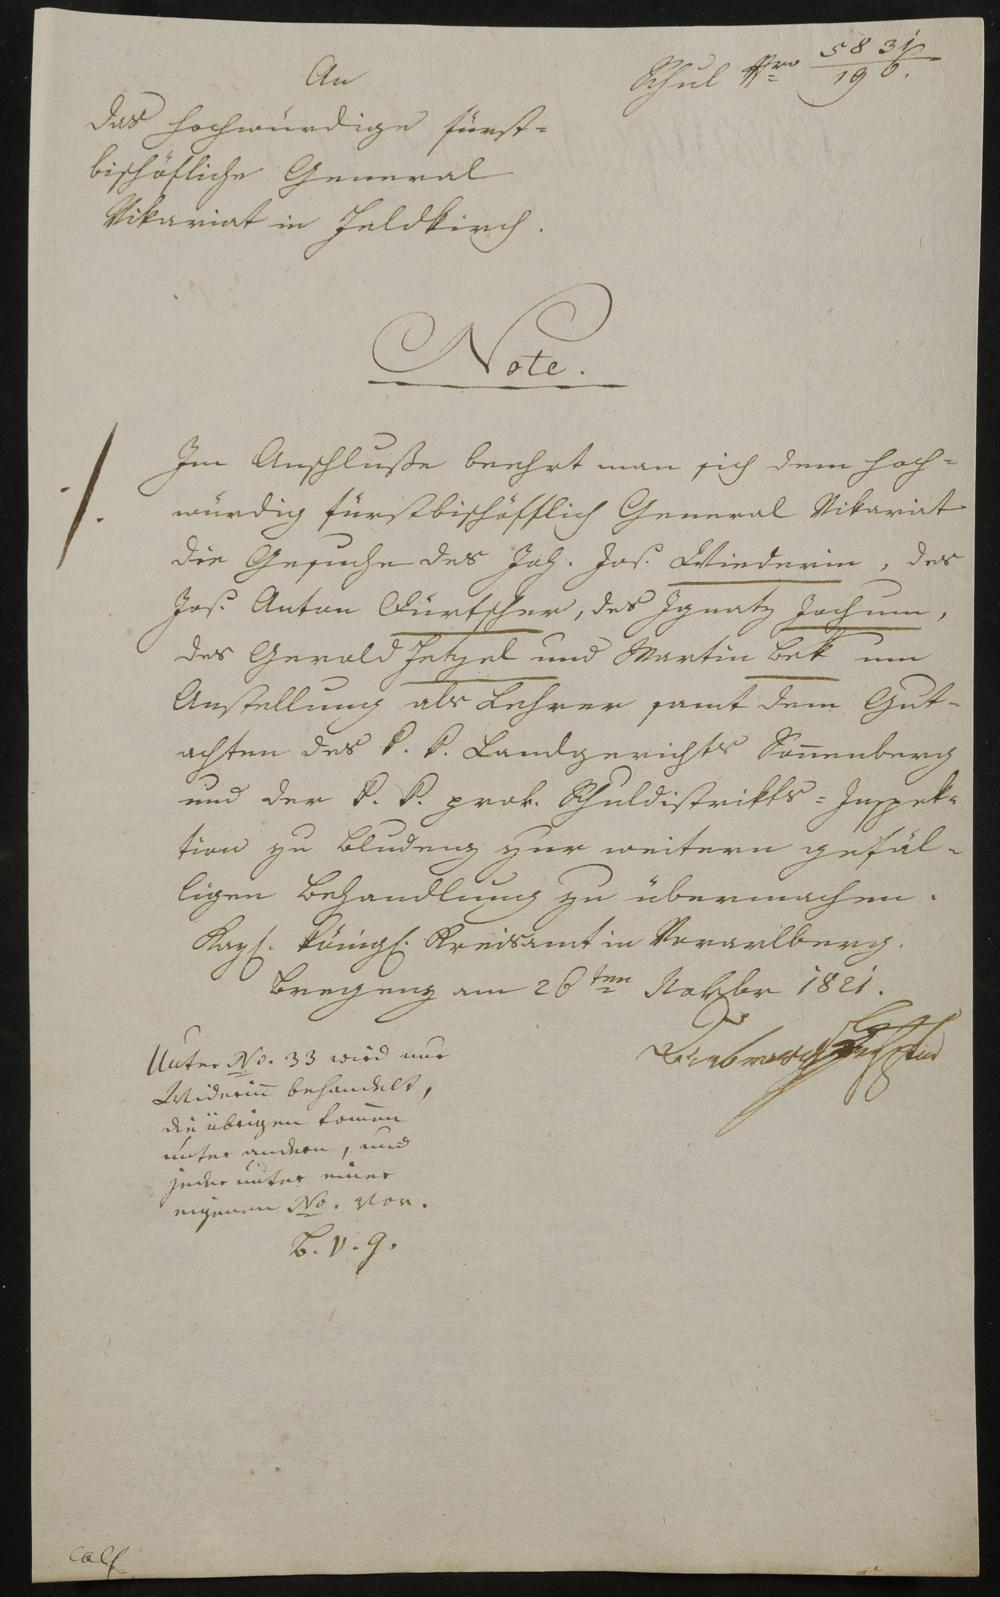 An
Schul Nro 5831/196.
das hochwürdige fürst=
bischöfliche General
Vikariat in Feldkirch.
Note.
Im Anschluße beehrt man sich dem hoch=
würdig fürstbischöfflich General Vikariat
die Gesuche des Joh. Jos. Wiederin, des
Jos. Anton Türtscher, des Ignatz Jochum,
des Gerold Jetzel und Martin Bek um
Anstellung als Lehrer samt dem Gut=
achten des k. k. Landgerichts Soñenberg
und der k. k. prov. Schuldistrikts=Inspek=
tion zu Bludenz zur weitern gefäl=
ligen Behandlung zu übermachen.
Kays. königs. Kreisamt in Vorarlberg.
Bregenz am 26ten Novbr 1821.
Unter No. 33 wird nur
Widerin̄ behandelt,
die übrigen kom̄en
unter andern, und
jeder unter einer
eigenen No. vor.
B. v. g.